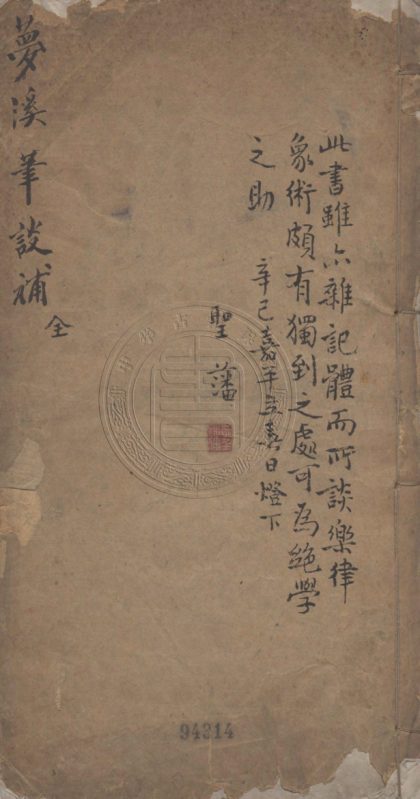 此書雖亦雜記體而所談樂律
象術頗有獨到之處可為絕學
之助
辛巳嘉平立春日燈下
聖藩
夢溪筆談補 全
94314